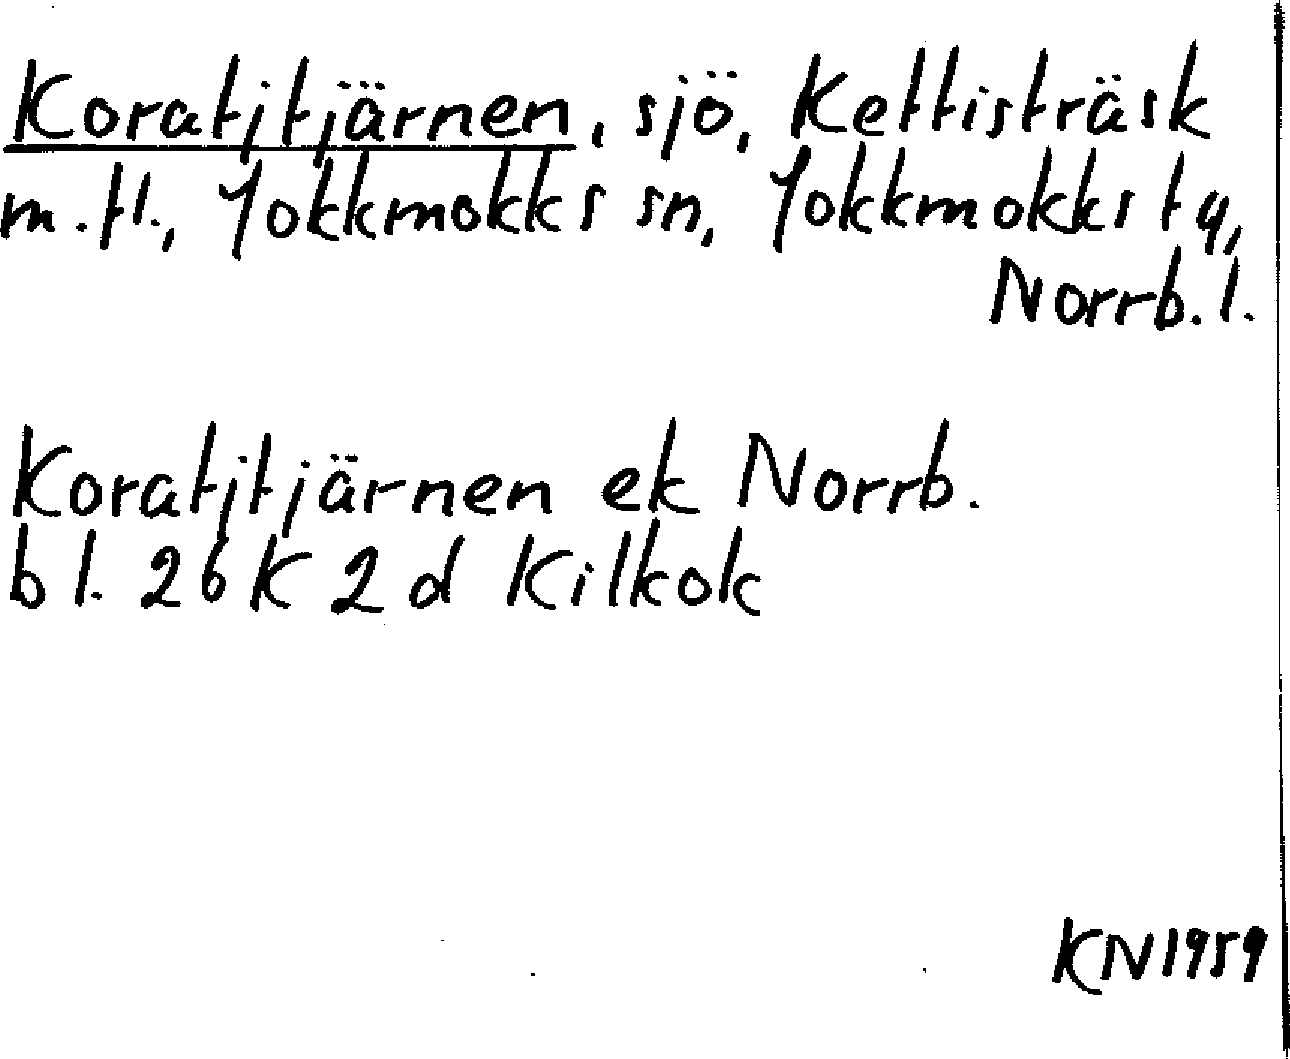 Koratjtjärnen, sjö, Kettisträsk
m.fl., Jokkmokks sn, Jokkmokks tg,
Norrb. l.
Koratjtjärnen ek Norrb.
bl. 26 K 2 d Kilkok
KN 1959